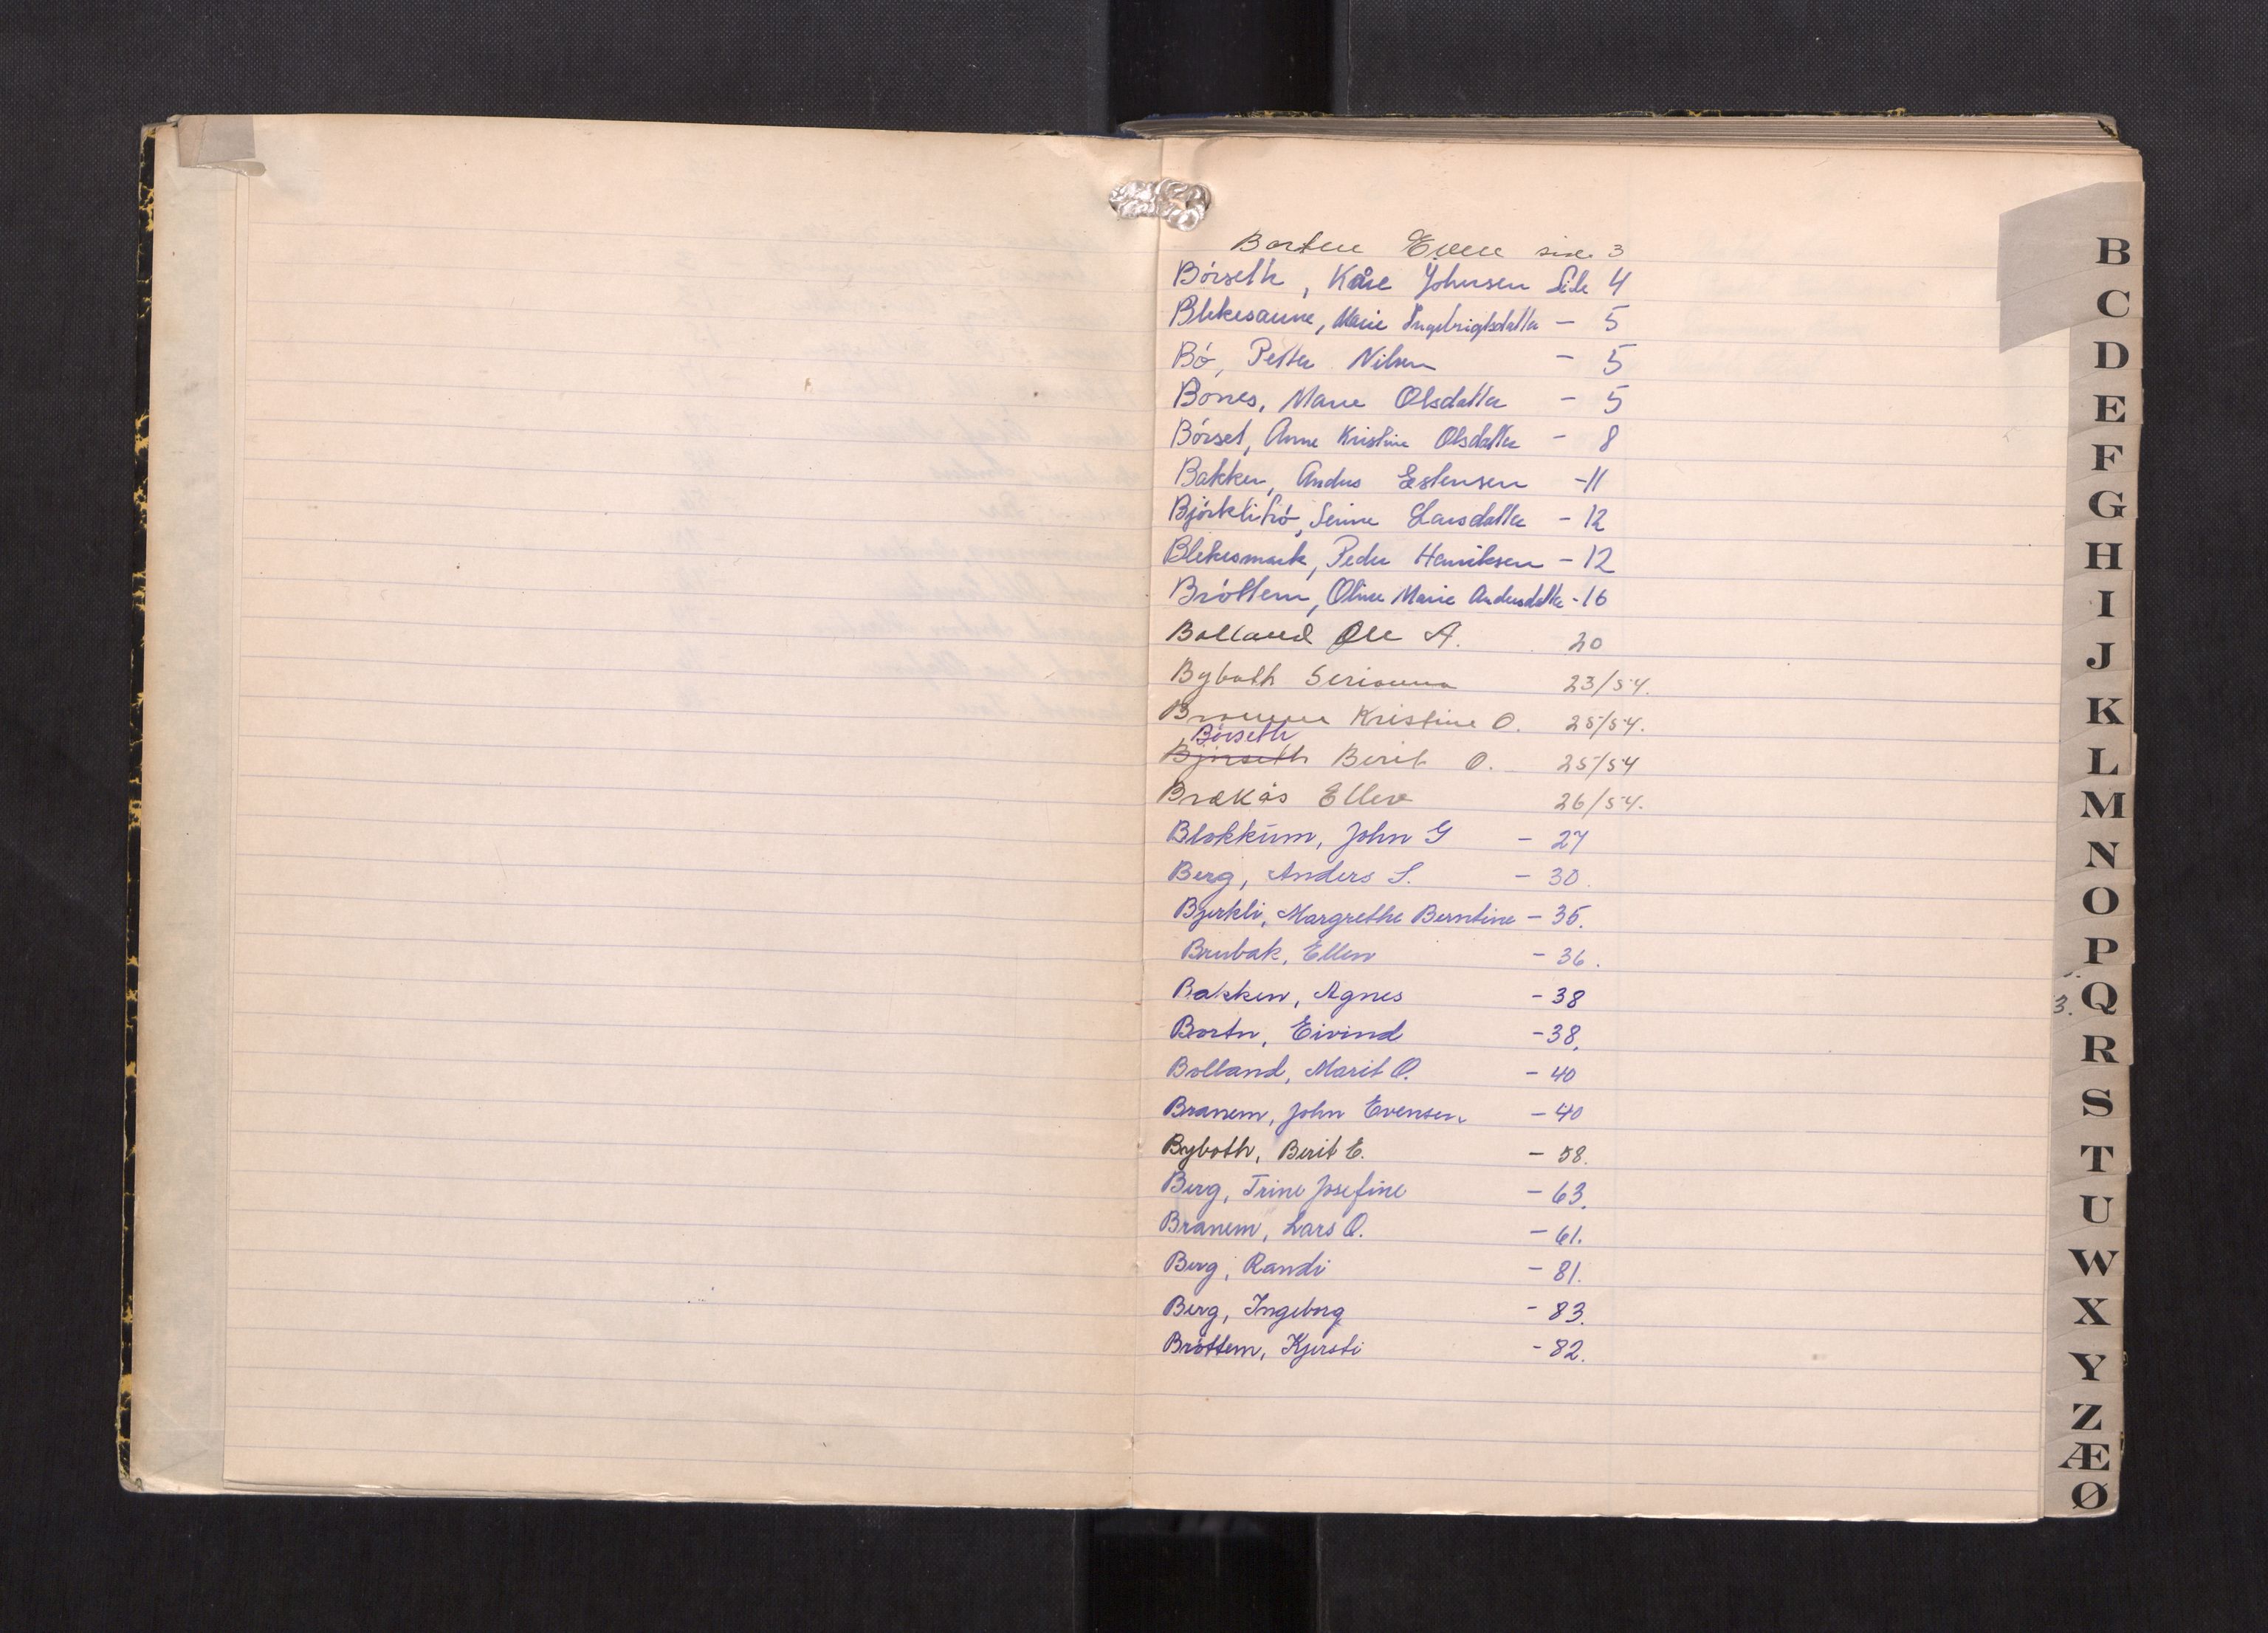 Borten Even side 3
Bórseth, Kåre Johnsen Side 4
Blekesaune, Marie Ingebrigtsdatter - 5
Bó, Petter Nilsen - 5
Bones, Marie Olsdatter - 5
Bórset, Anne Kristine Olsdatter - 8
Bakken, Anders Estensen - 11
Bjórklitró, Larsdatter - 12
Blekesmark, Peder Henriksen - 12
Bróttem, Oline Marie Andersdatter - 16
Bolland Ole A. 20
Byboth Serianna 23/54.
Kristine O. 25/54.
Bórseth
Bjørseth Berit O. 25/54
Brækås Ellev 26/54.
Blokkum, John G - 27
Berg, Anders S. - 30.
Bjerkli, Margrethe Berntine - 35.
Brubak, Ellen - 36.
Bakken, Agnes - 38
Bortn, Eivind - 38.
Bolland, Marit O. - 40
Branem, John Evensen - 40
Byboth, Berit E. - 58.
Berg, Trine Josefine - 63.
Branem, Lars O. - 61.
Berg, Randi - 81.
Berg, Ingeborg - 83.
Bróttem, Kjersti - 82.
B
C
D
E
F
G
H
I
J
K
L
M
N
O
P
Q
3.
R
S
T
U
W
X
Y
Z
Æ
Ø